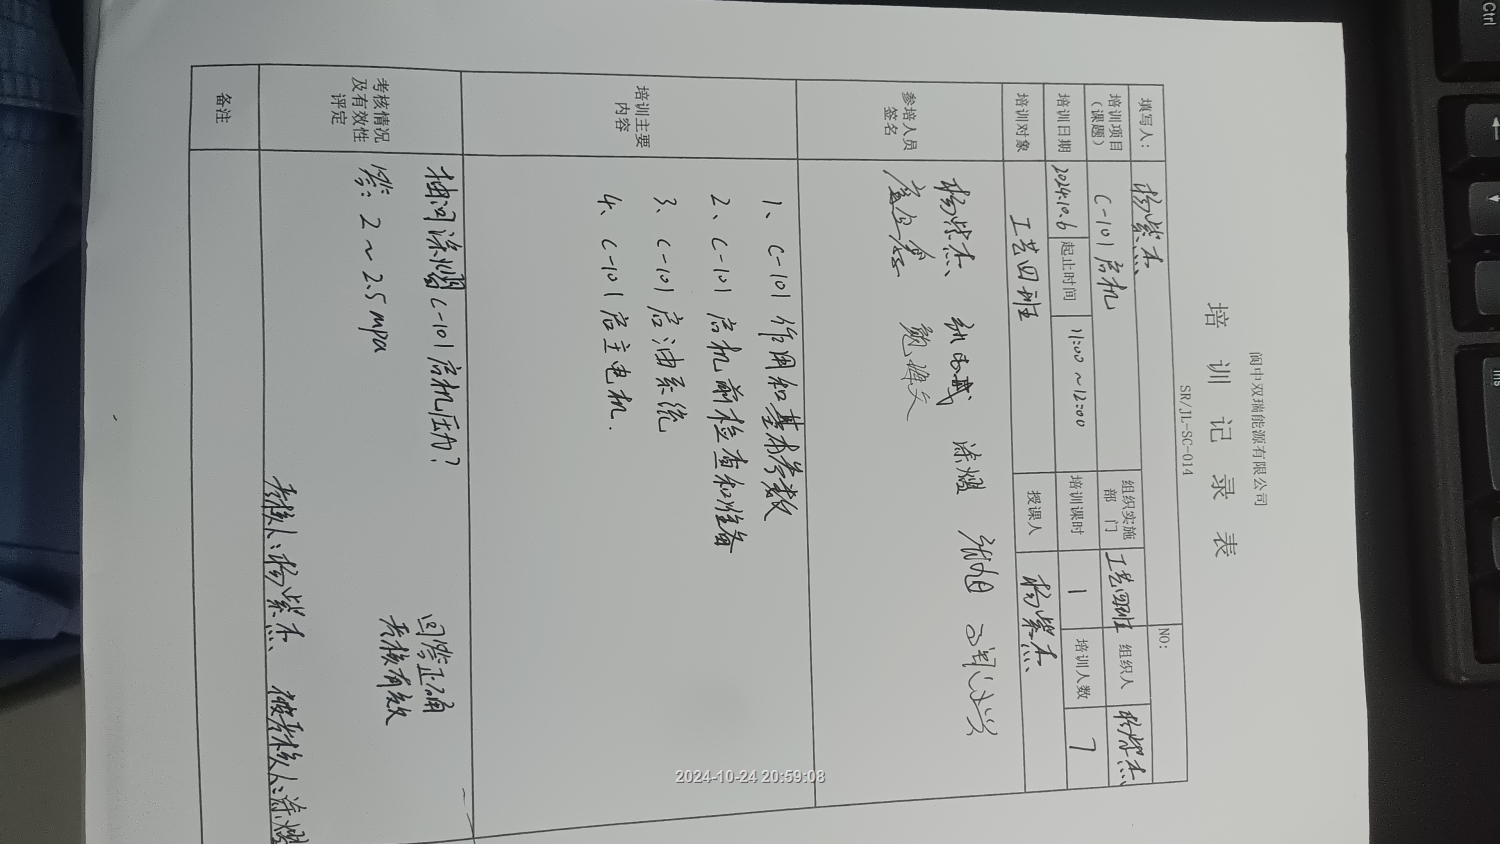 阆中双瑞能源有限公司
培训记录表
SR/JL-SC-014
NO:
填写人： 杨紫杰
培训项目（课题） C-101启机 组织实施部门 工艺四班 组织人 杨紫杰
培训日期 2024.10.6 起止时间 11:00～12:00 培训课时 1 培训人数 7
培训对象 工艺四班 授课人 杨紫杰
参培人员签名
杨紫杰 涂熠 张旭
培训主要内容
1、C-101作用和基本参数
2、C-101启机前检查和准备
3、C-101启油系统
4、C-101启主电机.
考核情况及有效性评定
抽问涂熠C-101启机压力？
答：2～2.5mpa
回答正确
考核有效
考核人：杨紫杰 被考核人：涂熠
备注
2024-10-24 20:59:08
Ctrl
Ins